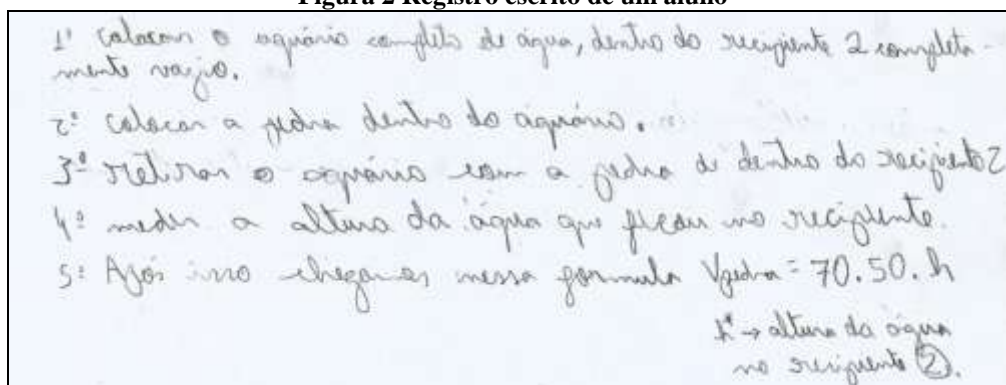 Figura 2 Registro escrito de um aluno
1º Colocar o aquário completo de água, dentro do recipiente 2 completa-
mente vazio.
2º Colocar a pedra dentro do aquário.
3º retirar o aquário com a pedra de dentro do recipiente 2
4º medir a altura da água que ficou no recipiente.
5º Após isso chegamos nessa formula Vpedra = 70.50.h
h → altura da água
no recipiente 2.